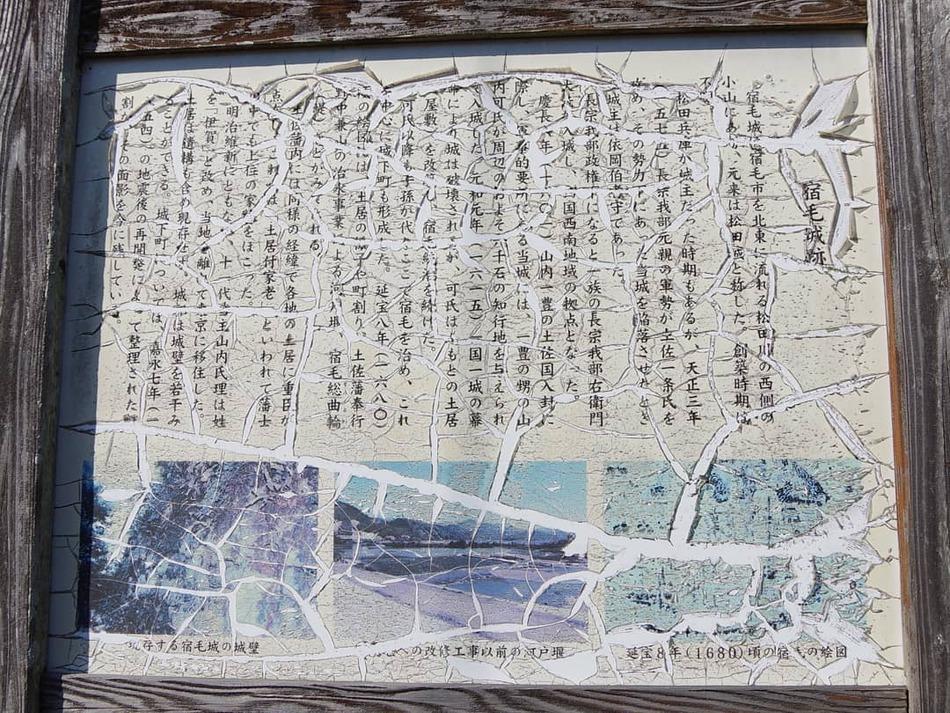 宿毛城跡
宿毛城は宿毛市を北東に流れる松田川の西側の
小山にあり、元来は松田城と称した。創築時期は
不
松田兵庫が城主だった時期もあるが、天正三年
一五七五）長宗我部元親の軍勢が土佐一条氏を
攻め、その勢力下にあった当城を陥落させたとき
城主は依岡伯耆守であった
長宗我部政権下になると一族の長宗我部右衛門
入城し、四国西南地域の拠点となった。
慶長六年 山内一豊の土佐国入封に
際し 要所である当城には、一豊の甥の山
内可氏が周辺のおよそ 千石の知行地を与えられ
入城した。元和元年（一六一五）一国一城の幕
命により城は破壊されたが、可氏はふもとの土居
屋敷）を改 宿毛 を続けた。
可氏以降も子孫が代々ここで宿毛を治め、これ
中心に城下町も形成 た。延宝八年（一六八〇）
の絵図には、土居の周りや町割り、土佐藩奉行
野中兼山の治水事業による河戸堰、宿毛総曲輪
どがみてとれる
土佐藩内には同様の経緯で各地の土居に重臣が
中でも上位の家格をほこった。
点 土居付家老 といわれて藩士
明治維新にともない、十 代当主山内氏理は姓
を「伊賀」と改め、当地を離れて東京に移住した。
土居は遺構も含め現存せず、城 は城壁を若干み
ることができる。城下町については、嘉永七年（一
五四）の地震後の再開発によって整理された町
割 の面影を今に残している
現存する宿毛城の城壁
への改修工事以前の河戸堰
延宝8年(1680)頃の宿毛の絵図